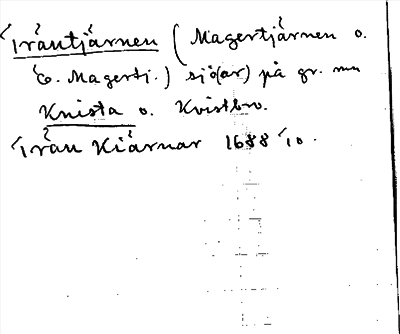 Tråntjärnen (Magertjärnen o.
L. Magertj.) sjö(ar) på gr. m
Knista o. Kvistbro.
Trån Kiärnar 1688 10.